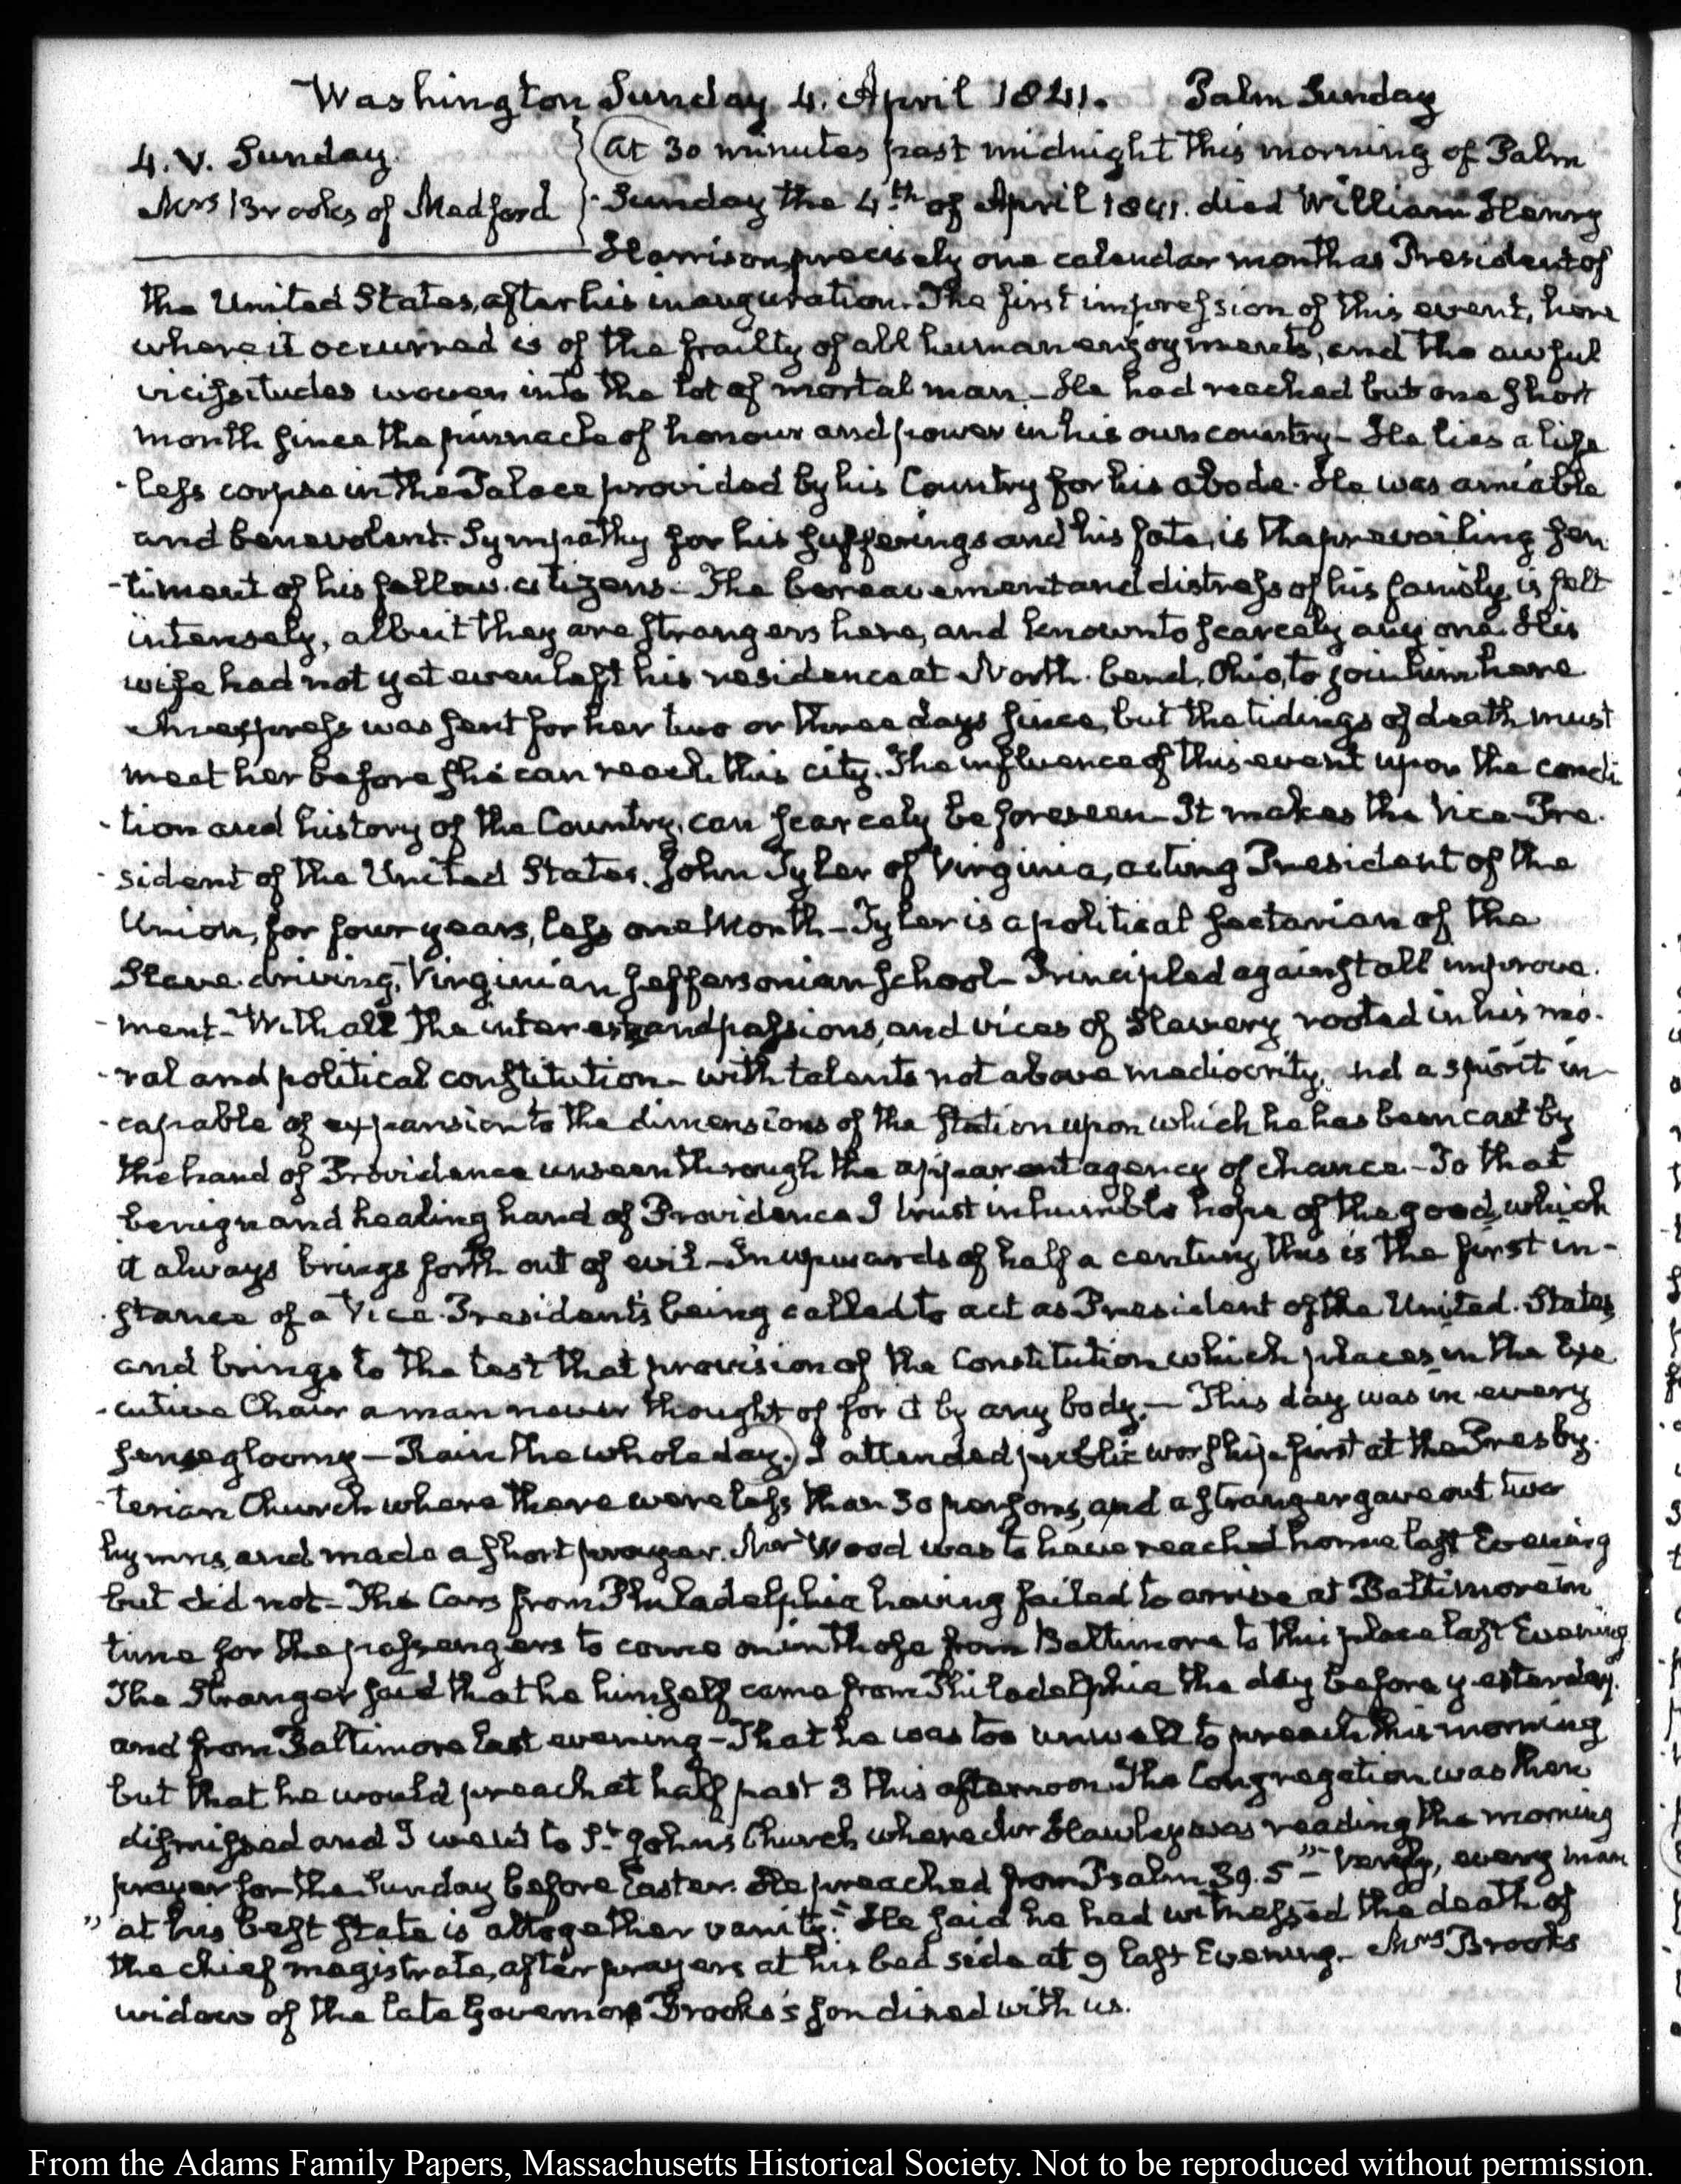 Washington Sunday 4. April 1841. Palm Sunday
4. V. Sunday.
Mrs Brooks of Medford
At 30 minutes past midnight this morning of Palm
Sunday the 4th of April 1841. died William Henry
Harrison, precisely one calendar month as President of
the United States, after his inauguration. The first impression of this event, here
where it occurred is of the frailty of all human enjoyments, and the awful
vicissitudes woven into the lot of mortal man. - He had reached but one short
month since the pinnacle of honour and power in his own country - He lies a life
-less corpse in the Palace provided by his Country for his abode. He was amiable
and benevolent. Sympathy for his sufferings and his fate, is the prevailing sen
-timent of his fellow-citizens - The bereavement and distress of his family, is felt
intensely, albeit they are strangers here, and known to scarcely any one. His
wife had not yet even left his residence at North-bend, Ohio, to join him here
An express was sent for her two or three days since, but the tidings of death must
meet her before she can reach this city. The influence of this event upon the condi
-tion and history of the Country, can scarcely be foreseen - It makes the Vice-Pre-
-sident of the United States. John Tyler of Virginia, acting President of the
Union, for four years, less one Month - Tyler is a political sectarian of the
Slave-driving, Virginian Jeffersonian school - Principled against all improve-
-ment - With all the interests and passions, and vices of Slavery rooted in his mo-
-ral and political constitution - with talents not above mediocrity, and a spirit in-
-capable of expansion to the dimensions of the station upon which he has been cast by
the hand of Providence unseen through the apparent agency of chance - To that
benign and healing hand of Providence I trust in humble hope of the good, which
it always brings forth out of evil - In upwards of half a century, this is the first in-
-stance of a Vice-President's being called to act as President of the United-States,
and brings to the test that provision of the Constitution which places in the Exe
-cutive Chair a man never thought of for it by any body. - This day was in every
sense gloomy - Rain the whole day. I attended public worship first at the Presby-
-terian Church where there were less than 30 persons, and a stranger gave out two
hymns, and made a short prayer. Mr Wood was to have reached home last Evening
but did not - The Cars from Philadelphia having failed to arrive at Baltimore in
time for the passengers to come on in those from Baltimore to this place last Evening
The Stranger said that he himself came from Philadelphia the day before yesterday.
and from Baltimore last evening - That he was too unwell to preach this morning
but that he would preach at half past 3 this afternoon. The Congregation was then
dismissed and I went to St. John's Church where Mr Hawley was reading the morning
prayer for the Sunday before Easter. He preached from Psalm 39.5 "- Verily, every man
" at his best state is altogether vanity." He said he had witnessed the death of
the chief magistrate, after prayers at his bed side at 9 last Evening. - Mrs Brooks
widow of the late Governor Brooks's son dined with us.
From the Adams Family Papers, Massachusetts Historical Society. Not to be reproduced without permission.